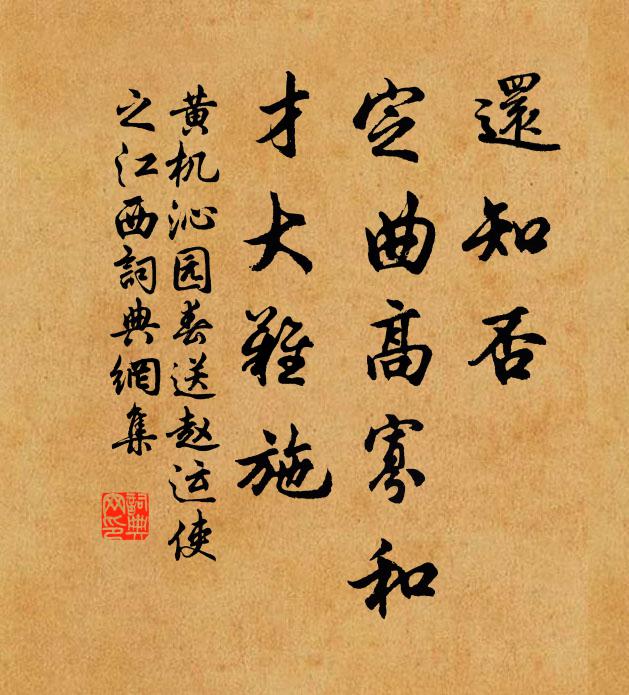 還知否
定曲高寡和
才大難施
黄机沁园春送赵运使
之江西詞典網集
詞典